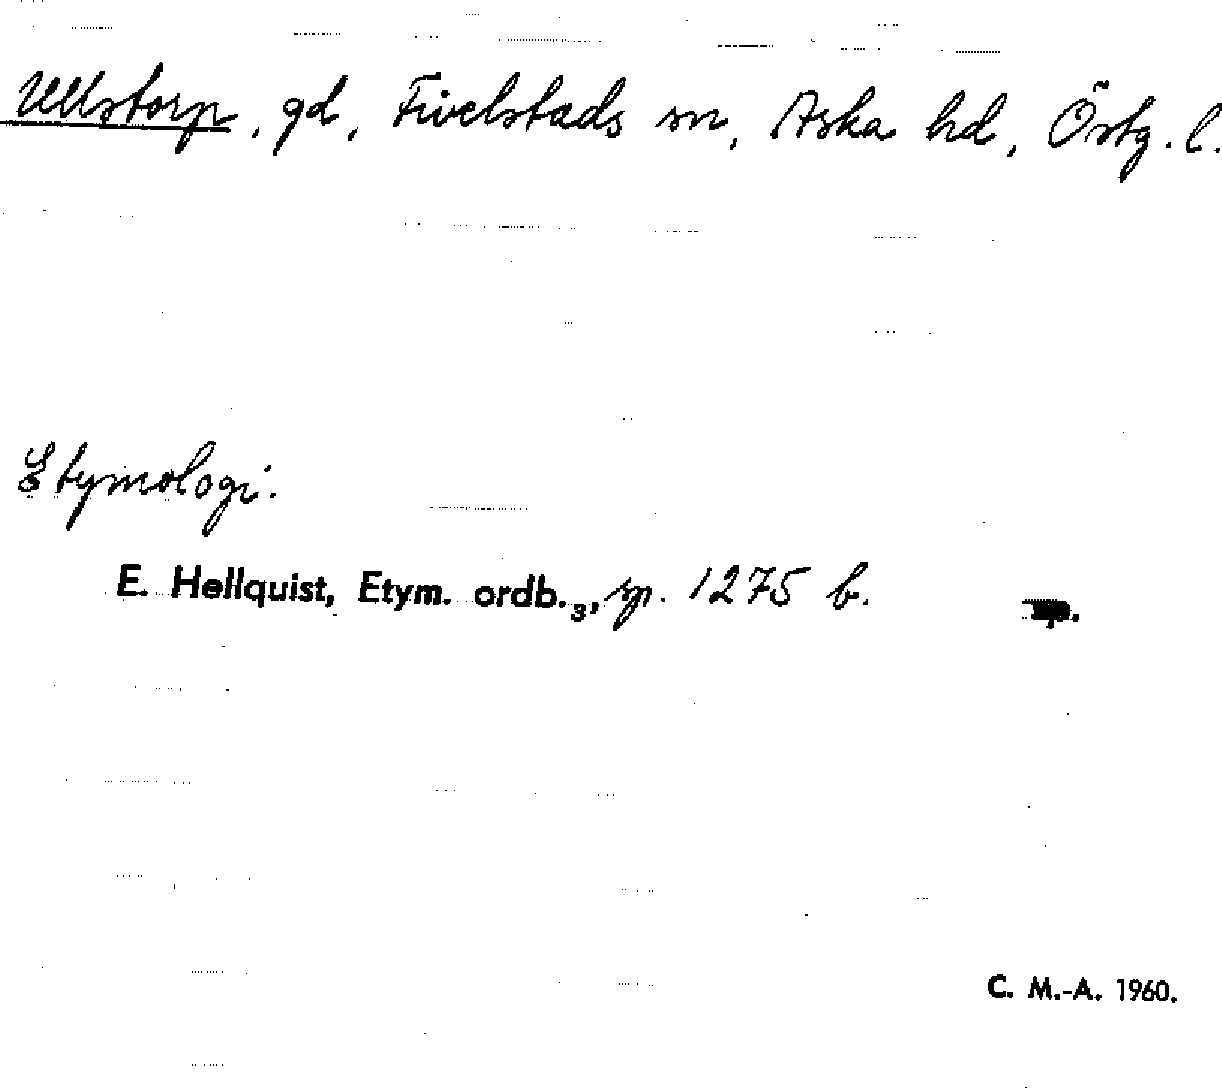 Ullstorp, gd, Fivelstads sn, Aska hd, Östg. l.
Etymologi.
E. Hellquist, Etym. ordb.₃, sp. 1275 b.
C. M.-A. 1960.